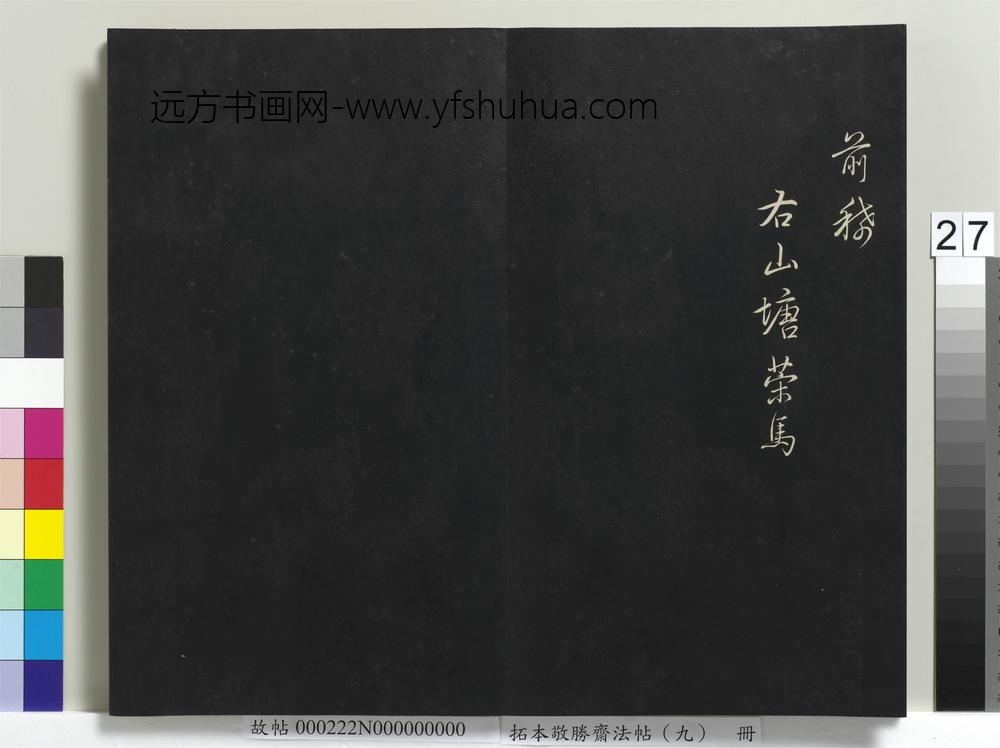 远方书画网-www.yfshuhua.com
前稜
右山塘策馬
27
故帖 000222N000000000
拓本敬勝齋法帖（九） 冊